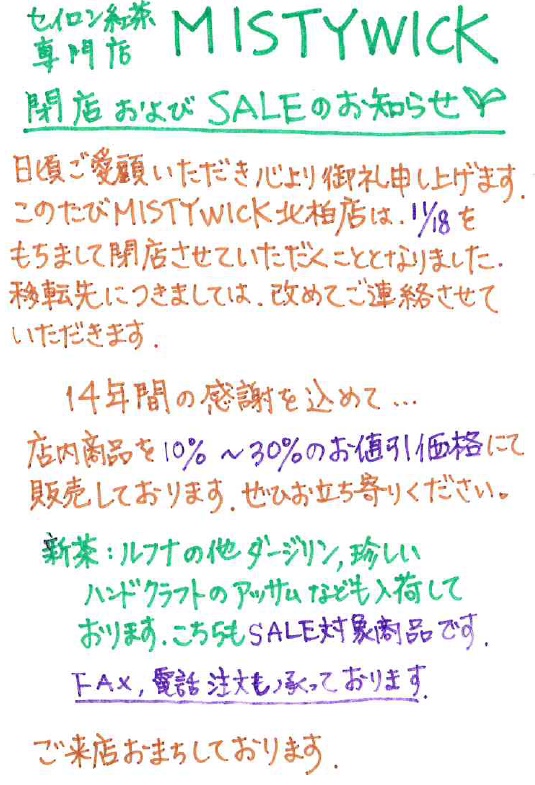 セイロン紅茶
専門店 MISTYWICK
閉店 および SALEのお知らせ
日頃ご愛顧いただき心より御礼申し上げます.
このたびMISTYWICK北柏店は、11/18を
もちまして閉店させていただくこととなりました.
移転先につきましては、改めてご連絡させて
いただきます.
14年間の感謝を込めて...
店内商品を10%~30%のお値引価格にて
販売しております、ぜひお立ち寄りください。
新茶:ルフナの他ダージリン,珍しい
ハンドクラフトのアッサムなども入荷して
おります.こちらもSALE対象商品です.
FAX,電話注文も承っております.
ご来店おまちしております.